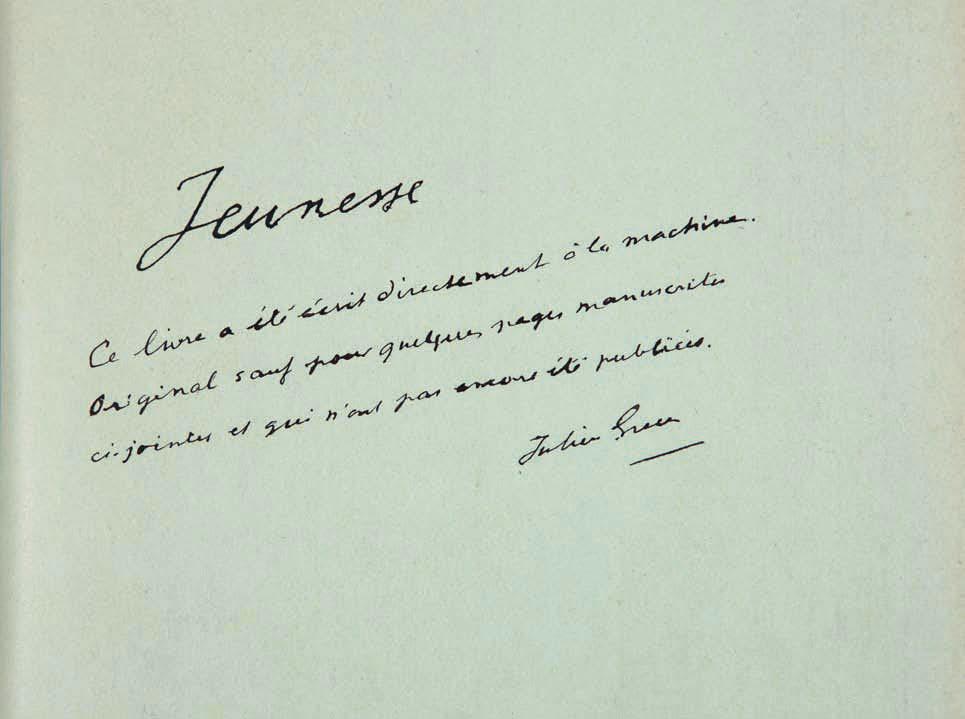 Jeunesse
Ce livre a été écrit directement à la machine.
Original sauf pour quelques pages manuscrites
ci-jointes et qui n'ont pas encore été publiées.
Julien Green